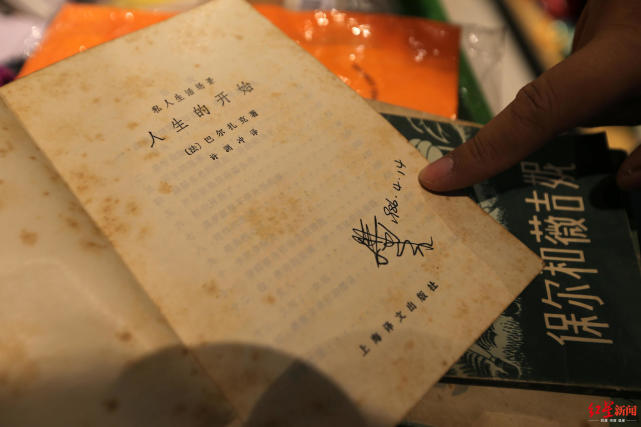 私人生活场景
人生的开始
(法) 巴尔扎克著
许渊冲译
1986.4.14
上海译文出版社
保尔和薇吉妮
红星新闻